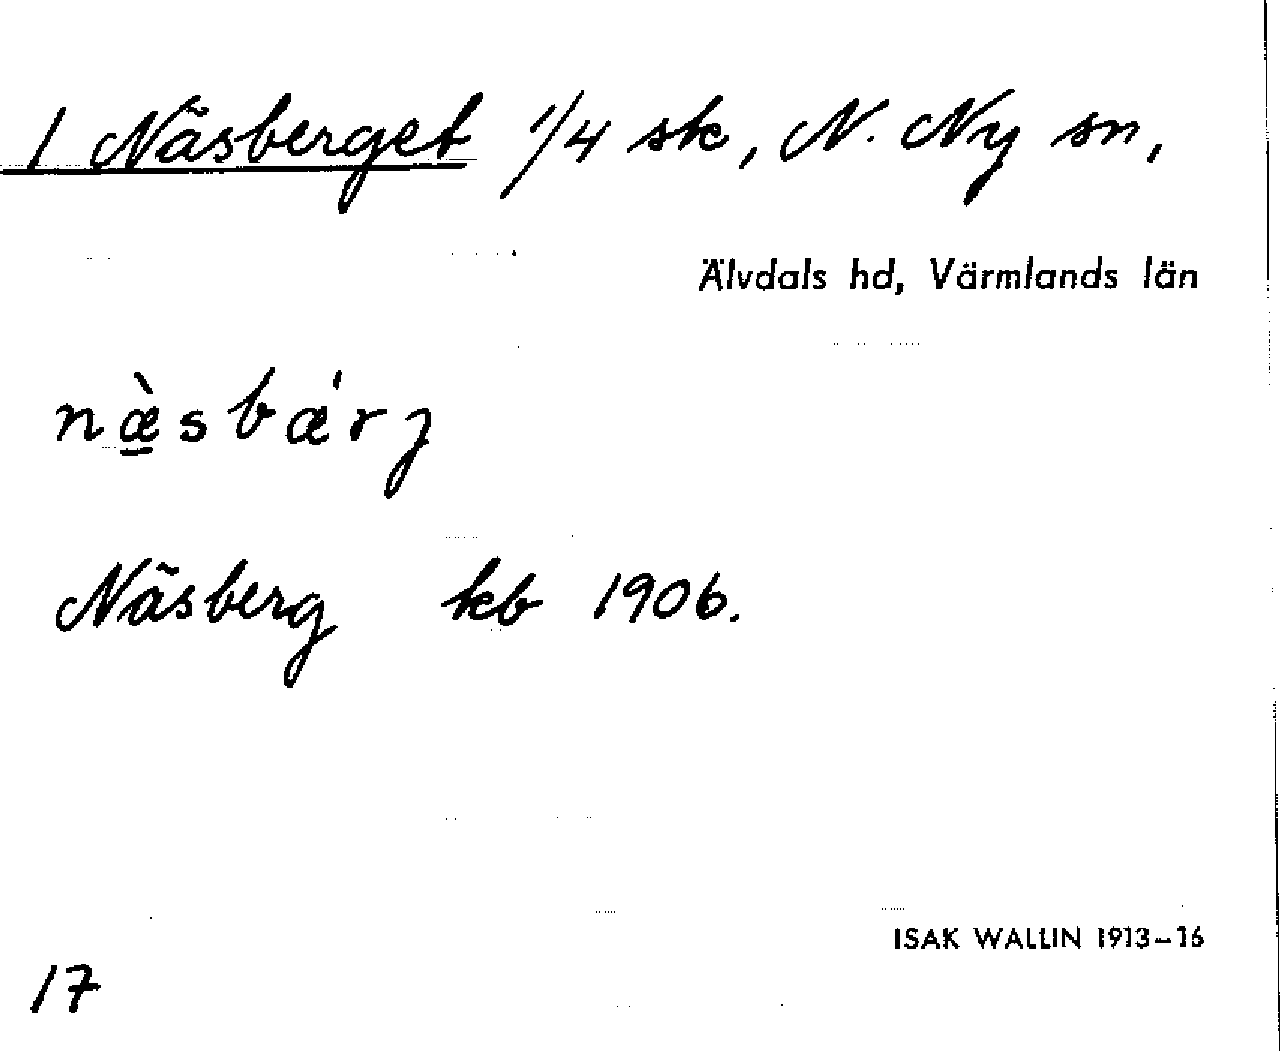 1 Näsberget 1/4 sk, N. Ny sn,
Älvdals hd, Värmlands län
næ̱̀sbǽrj
Näsberg kb 1906.
ISAK WALLIN 1913–16
17